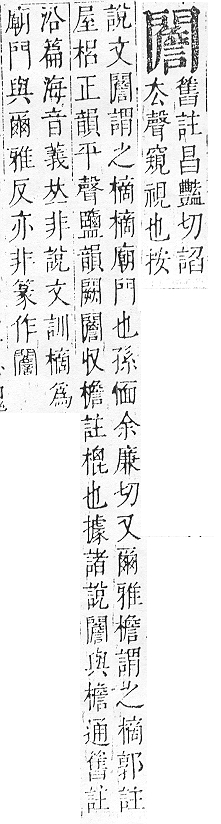 誾舊註昌豔切諂
去聲窺視也按
說文誾謂之樀樀廟門也孫愐余廉切又爾雅檐謂之樀郭註
屋梠正韻平聲鹽韻闕誾收檐註榥也據諸說誾與檐通舊註
沿篇海音義𠀤非說文訓樀爲
廟門與爾雅反亦非篆作誾